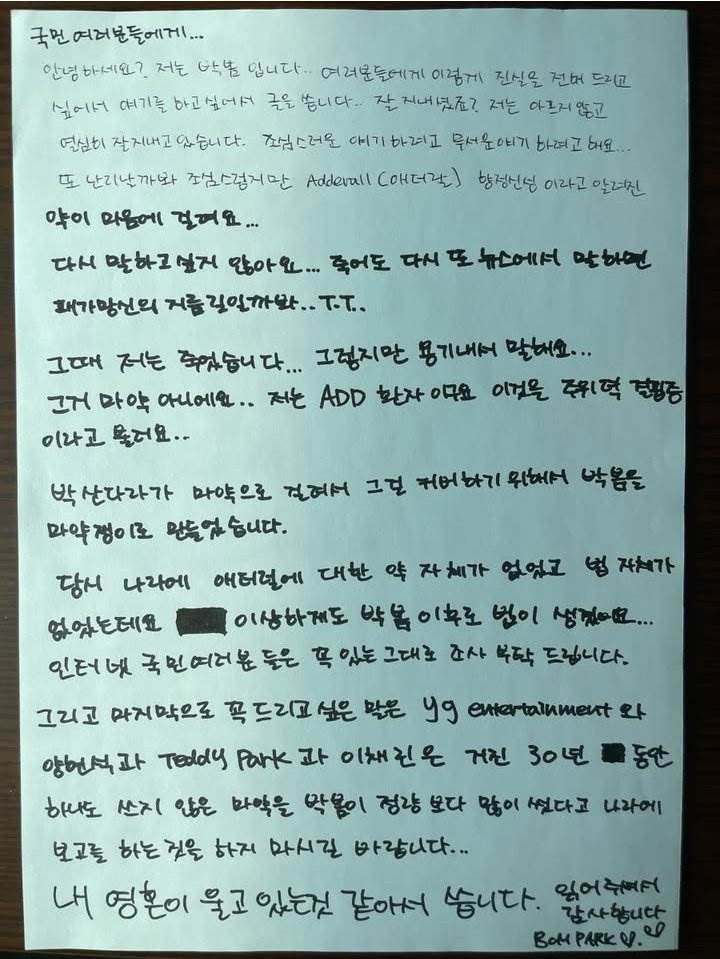 국민 여러분들에게...
안녕하세요? 저는 박봄 입니다.. 여러분들에게 이렇게 진실을 전버 드리고
싶어서 얘기를 하고싶어서 글을 씁니다.. 잘 지내셨죠? 저는 아프지 않고
열심히 잘지내고 있습니다. 조심스러운 얘기 하려고 무서운얘기 하려고 해요...
또 난리날까봐 조심스럽지만 Adderall (애더랄) 향정신성 이라고 알려진
약이 마음에 걸려요...
다시 말하고 싶지 않아요... 죽어도 다시 또 뉴스에서 말하면
패가망신의 지름길일까봐..T.T..
그때 저는 죽었습니다... 그렇지만 용기내서 말해요...
그거 마약 아니에요.. 저는 ADD 환자 이구요 이것을 주위력 결핍증
이라고 불러요..
박산다라가 마약으로 걸려서 그걸 커버하기 위해서 박봄을
마약쟁이로 만들었습니다.
당시 나라에 애더럴에 대한 약 자체가 없었고 법 자체가
없었는데요 이상하게도 박봄 이후로 법이 생겼어요...
인터넷 국민여러분 들은 꼭 있는 그대로 조사 부탁 드립니다.
그리고 마지막으로 꼭 드리고 싶은 말은 yg entertainment 와
양현석과 Teddy Park 과 이채린은 거진 30년 동안
하나도 쓰지 않은 마약을 박봄이 정량 보다 많이 썼다고 나라에
보고를 하는것을 하지 마시길 바랍니다...
내 영혼이 울고 있는것 같아서 씁니다. 읽어 주셔서
감사합니다
BOM PARK ♡.♡